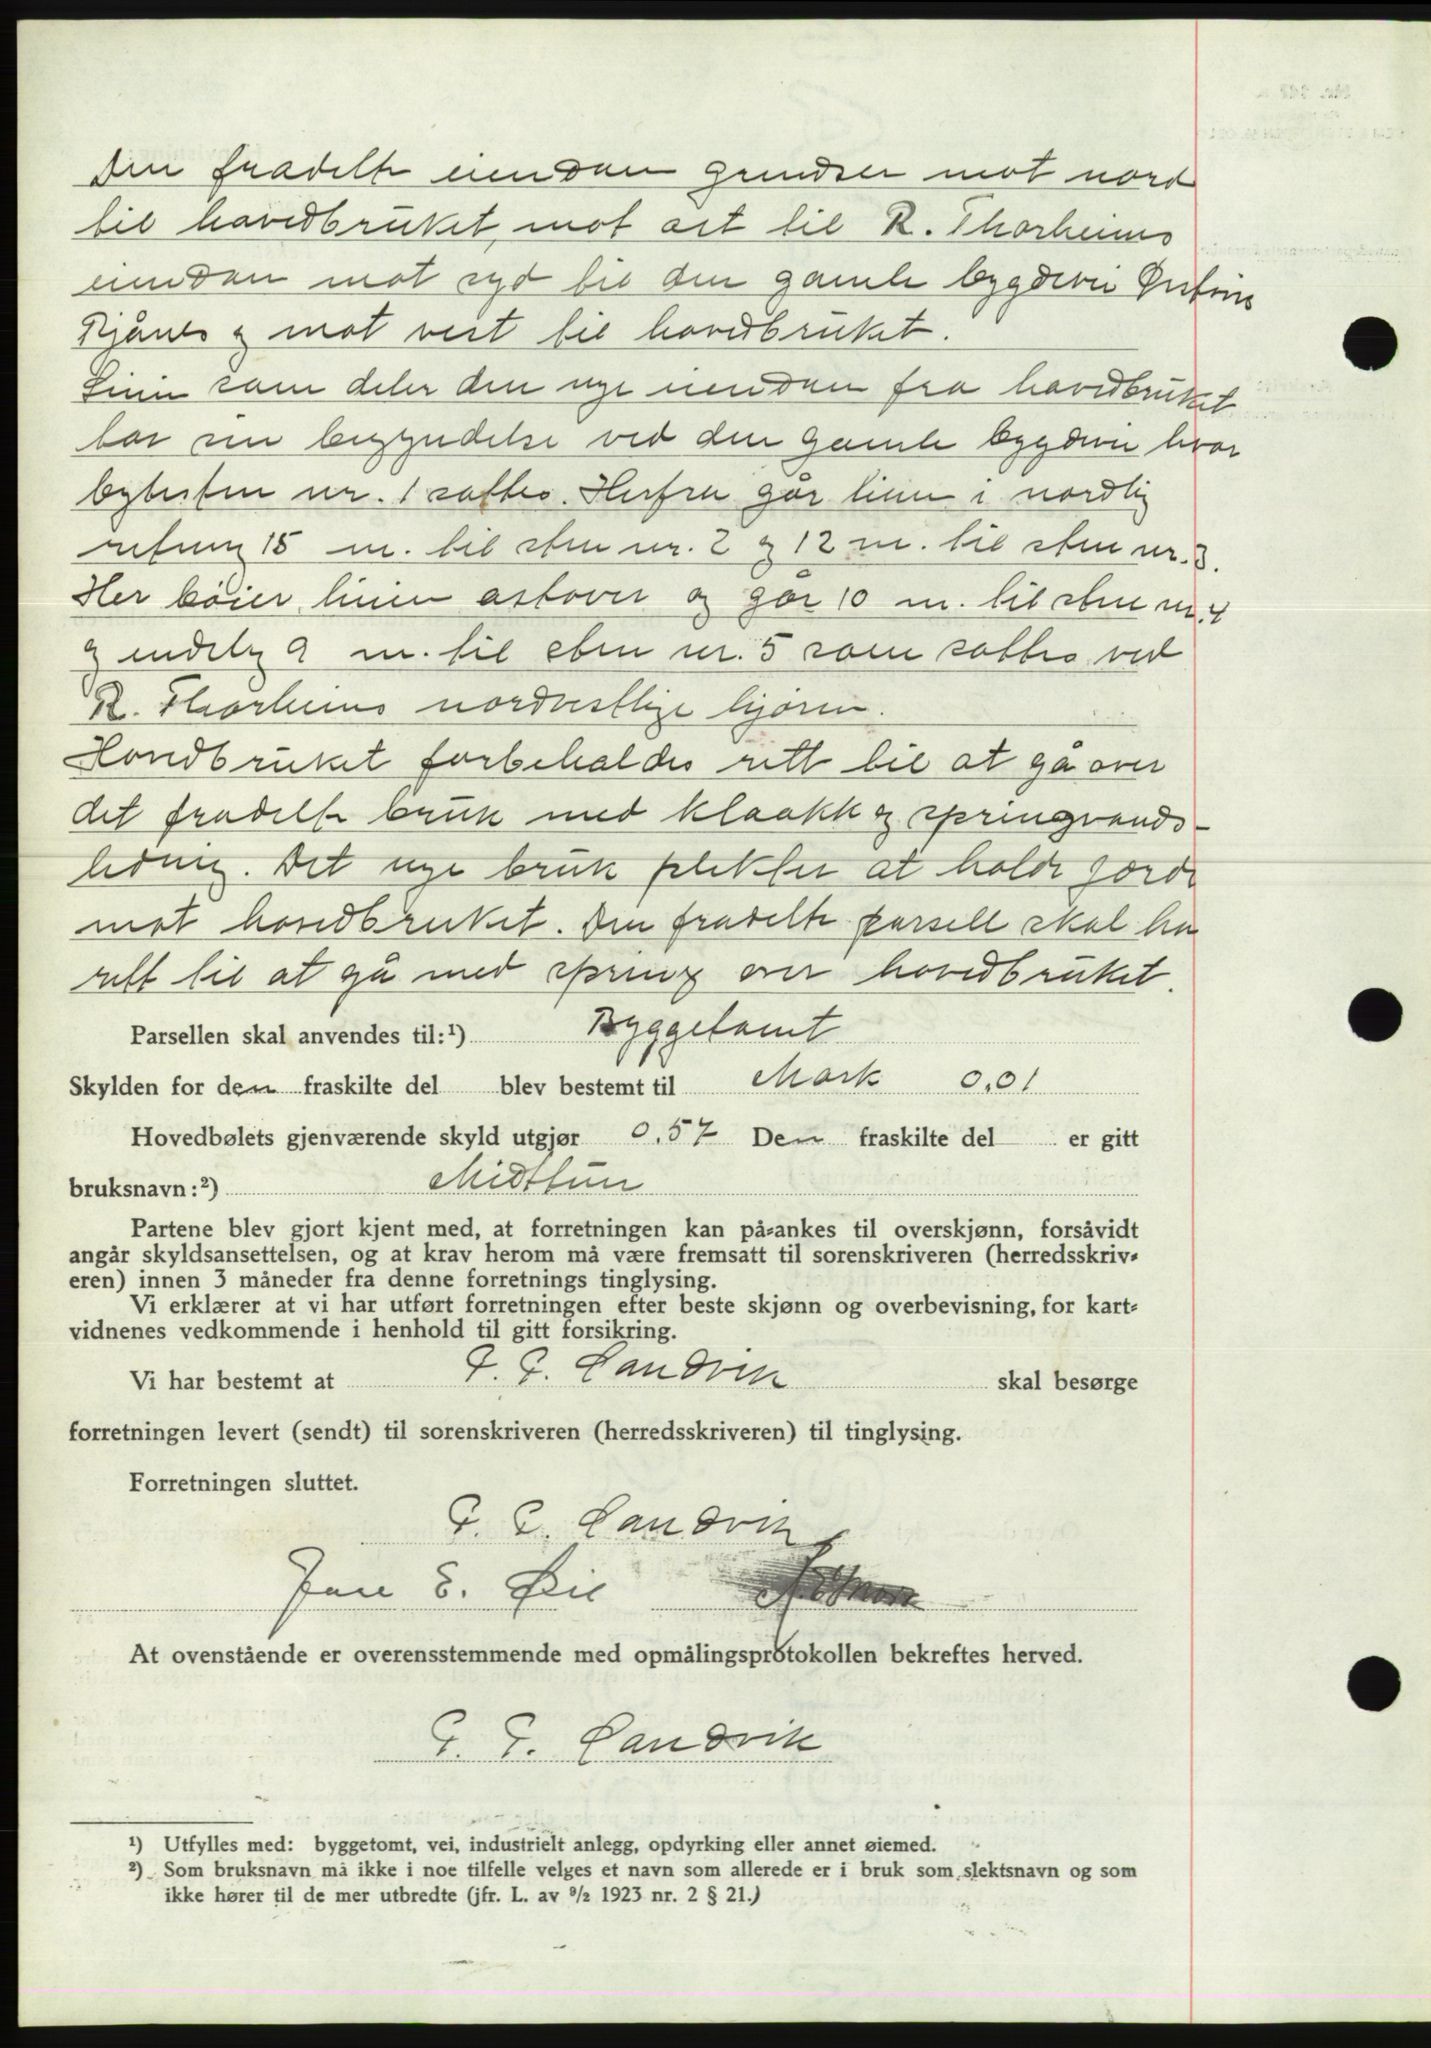 Den fradelte eiendom grendser mot nord
til hovedbruket, mot øst til R. Thorheims
eiendom mot syd til den gamle bygdevei Ørstvik
Bjånes og mot vest til hovedbruket.
Linin som deler den nye eiendom fra hovedbruket
tar sin begyndelse ved den gamle bygdevei hvor
bytesten nr. 1 sattes. Herfra går linin i nordlig
retning 15 m. til sten nr. 2 og 12 m. til sten nr. 3.
Her bøier linien østover og går 10 m. til sten nr. 4
og endelig 9 m. til sten nr. 5 som sattes ved
R. Thorheims nordvestlige hjørne.
Hovedbruket forbeholdes rett til at gå over
det fradelte bruk med kloakk og springvands-
ledning. Det nye bruk plikter at holde gjerde
mot hovedbruket. Den fradelte parsell skal ha
rett til at gå med spring over hovedbruket.
Parsellen skal anvendes til:¹) Byggetomt
Skylden for den fraskilte del blev bestemt til Mark 0,01
Hovedbølets gjenværende skyld utgjør 0,57 Den fraskilte del er gitt
bruksnavn:²) Midttun
Partene blev gjort kjent med, at forretningen kan på-ankes til overskjønn, forsåvidt
angår skyldsansettelsen, og at krav herom må være fremsatt til sorenskriveren (herredsskriv-
eren) innen 3 måneder fra denne forretnings tinglysing.
Vi erklærer at vi har utført forretningen efter beste skjønn og overbevisning, for kart-
vidnenes vedkommende i henhold til gitt forsikring.
Vi har bestemt at P. P. Sandvik skal besørge
forretningen levert (sendt) til sorenskriveren (herredsskriveren) til tinglysing.
Forretningen sluttet.
P. P. Sandvik
E.
At ovenstående er overensstemmende med opmålingsprotokollen bekreftes herved.
P. P. Sandvik
¹) Utfylles med: byggetomt, vei, industrielt anlegg, opdyrking eller annet øiemed.
²) Som bruksnavn må ikke i noe tilfelle velges et navn som allerede er i bruk som slektsnavn og som
ikke hører til de mer utbredte (jfr. L. av ⁹/₂ 1923 nr. 2 § 21.)